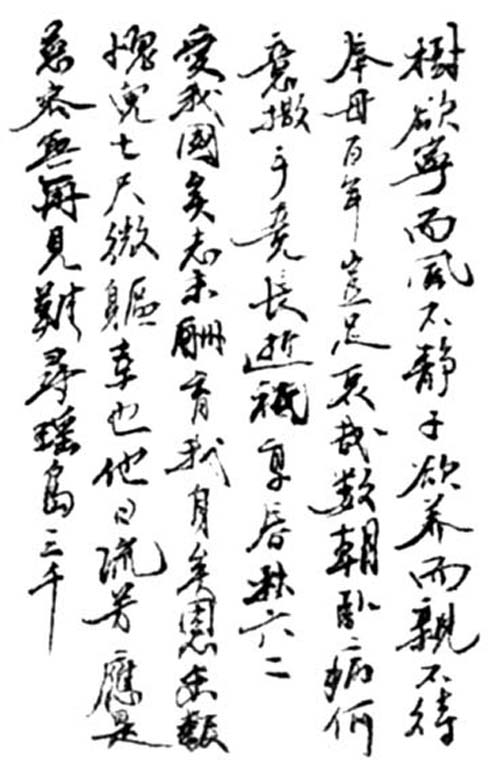 樹欲寧而風不靜子欲養而親不待
奉母百年豈足哀哉數朝臥病何
意撒手竟長逝祗享春秋六二
愛我國矣志未酬育我身矣恩未報
愧兒七尺微軀幸也他日流芳應是
慈容無再見難尋瑤島三千